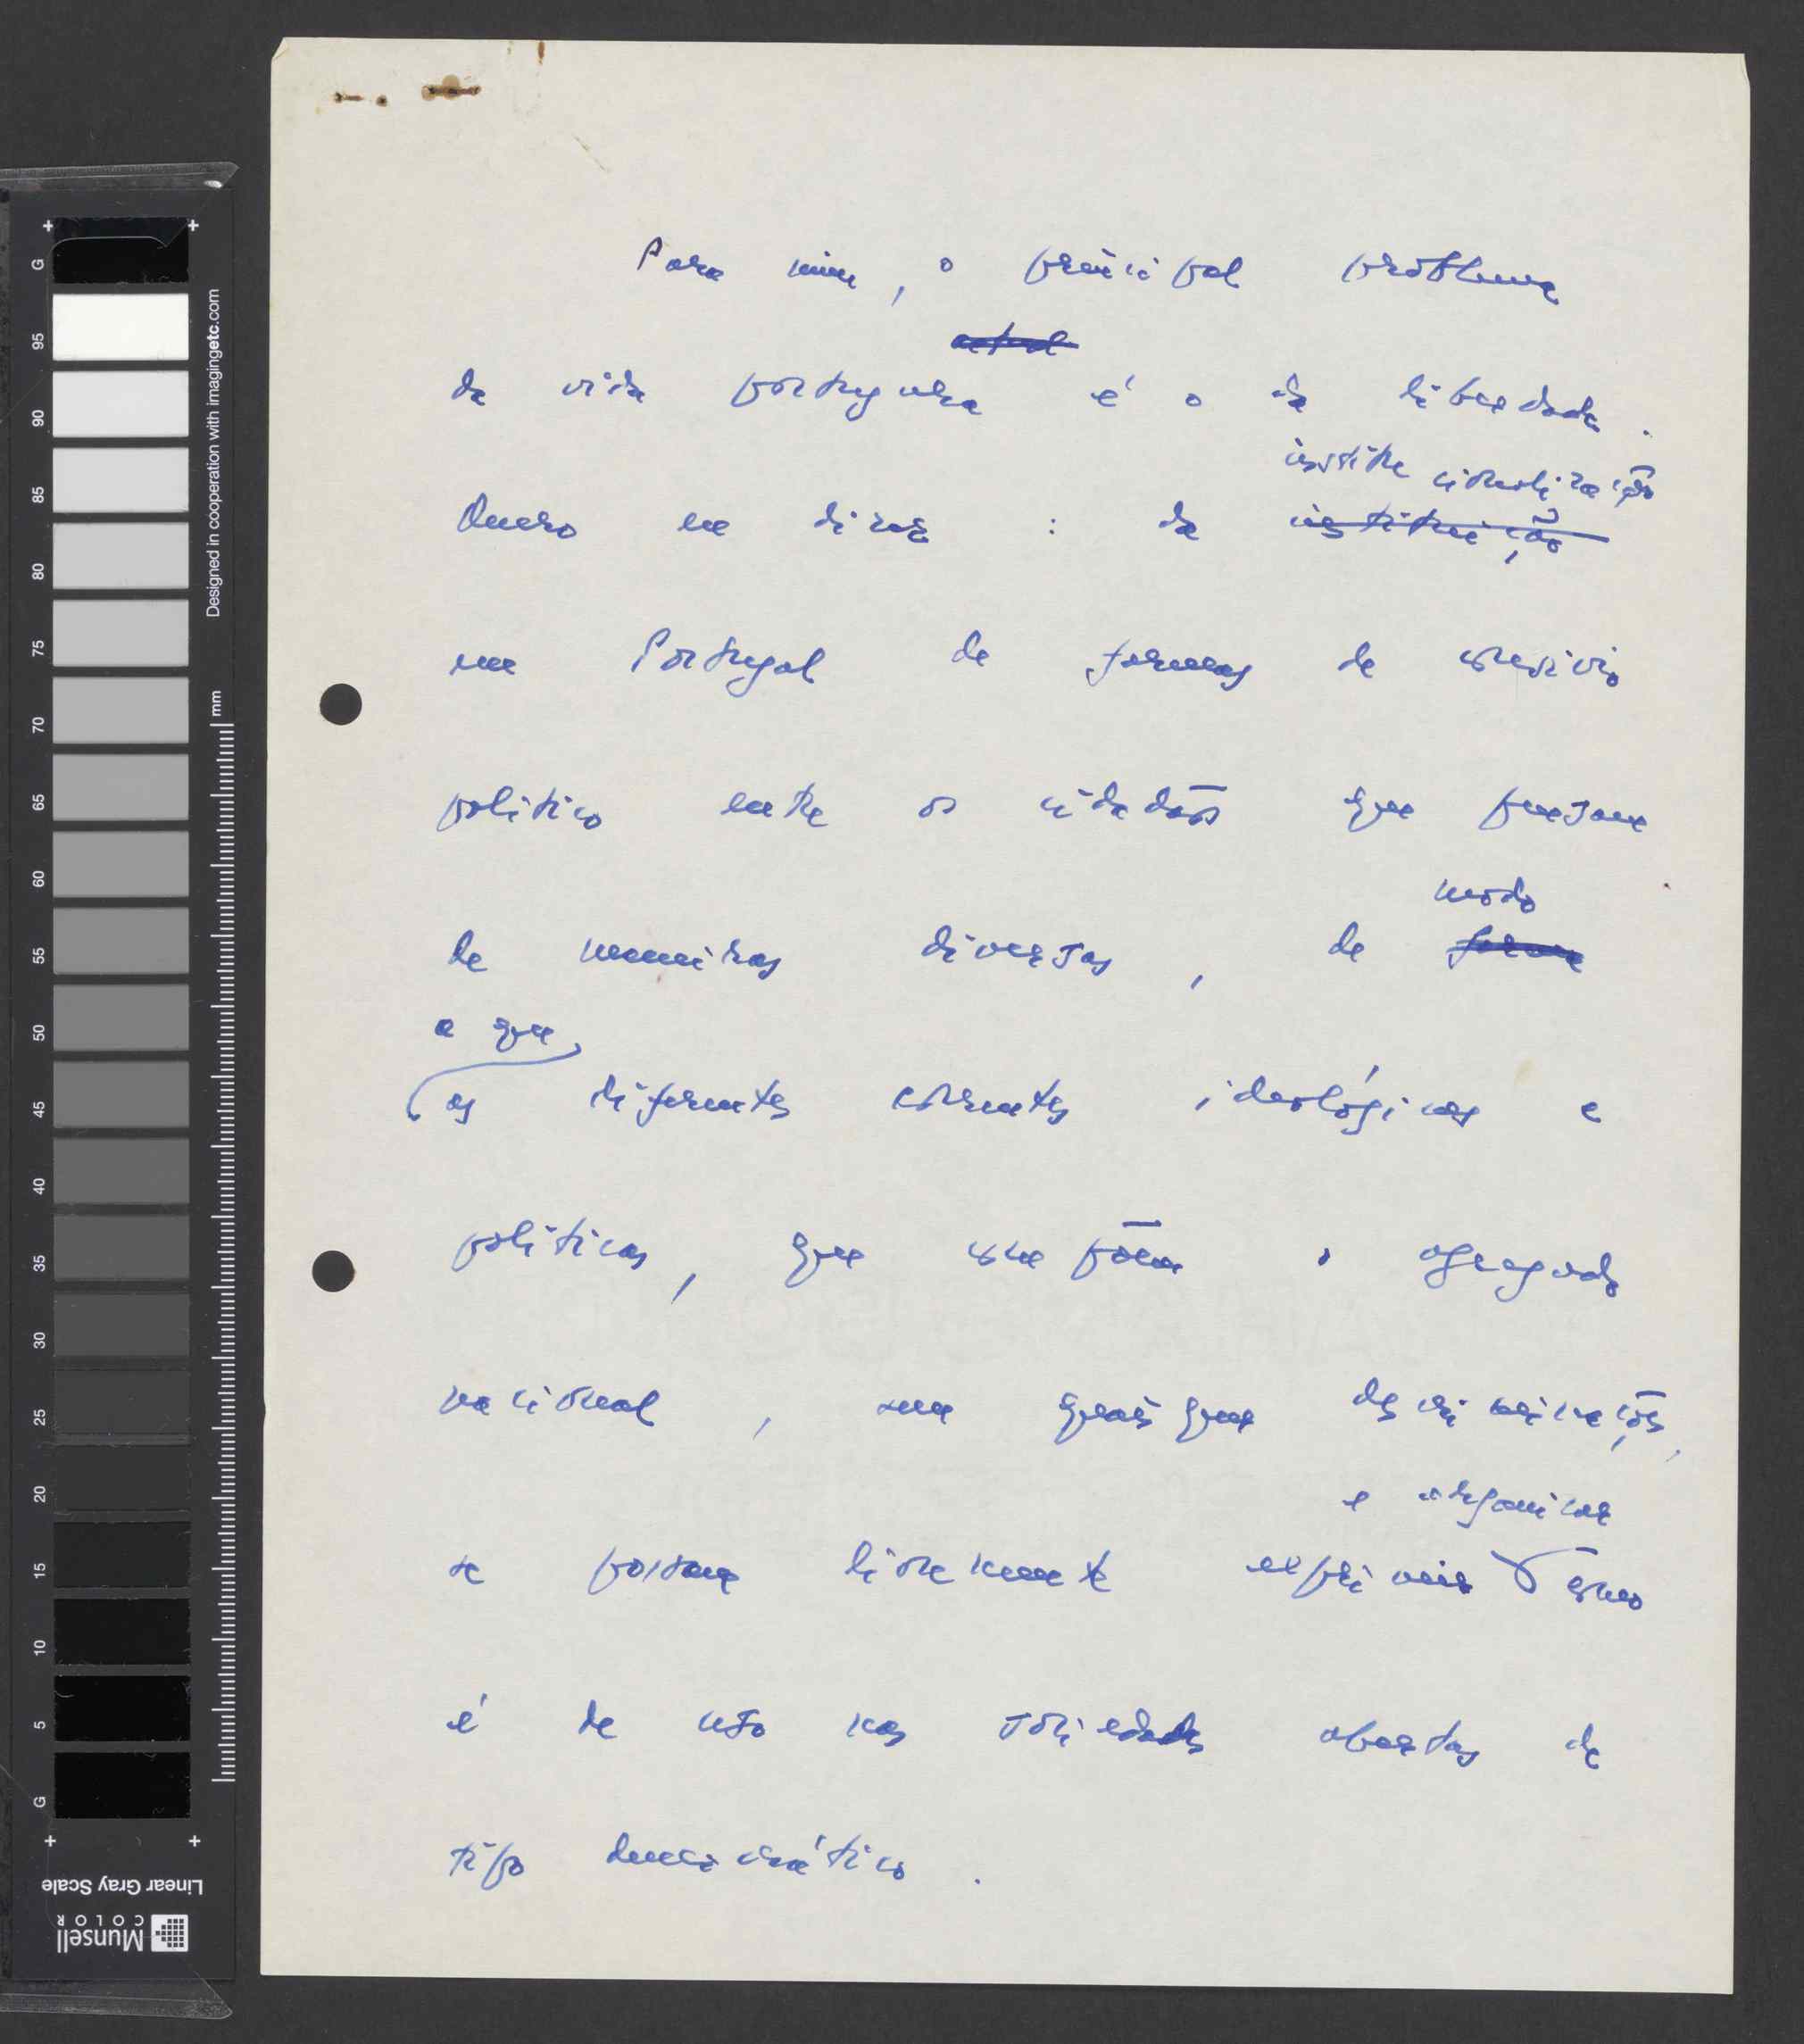 Para mim, o principal problema
actual
da vida portuguesa é o da liberdade.
institucionalização
Quero eu dizer: da instituição
em Portugal de formas de convívio
político entre os cidadãos que pensam
modo
de maneiras diversas, de forma
a que
as diferentes correntes ideológicas e
políticas, que compõem o agregado
nacional, sem quaisquer descriminações,
e organizar
se possam livremente exprimir como
é de uso nas sociedades abertas de
tipo democrático.
G 95 90 85 80 75 70 65 60 55 50 45 40 35 30 25 20 15 10 5 G
mm
Designed in cooperation with imagingetc.com
Linear Gray Scale
Munsell
COLOR